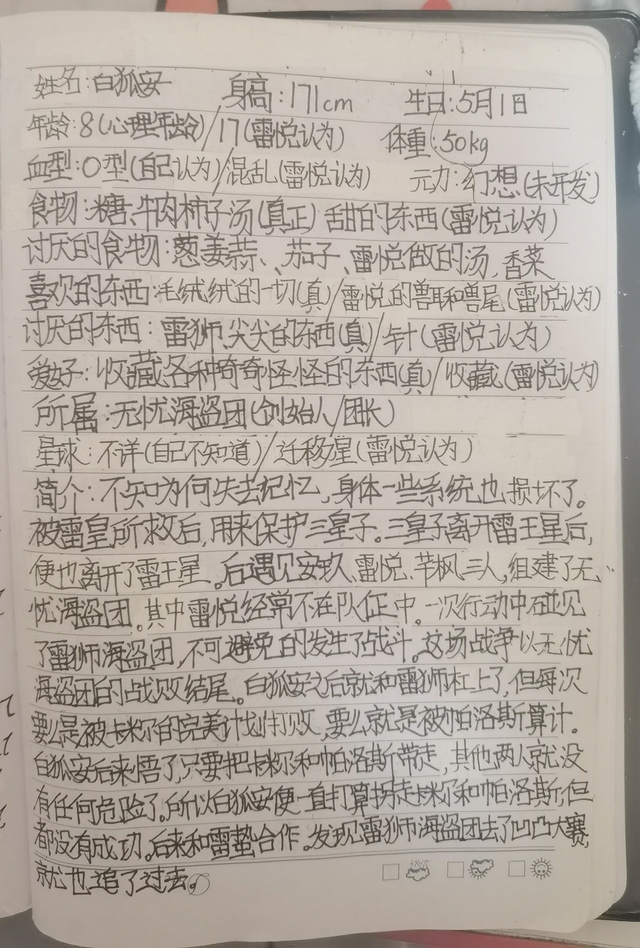 姓名:白狐安 身高:171cm 生日:5月1日
年龄:8(心理年龄)/17(雷悦认为) 体重:50kg
血型:O型(自己认为)/混乱(雷悦认为) 元力:幻想(未开发)
食物:糖、牛肉柿子汤(真正) 甜的东西(雷悦认为)
讨厌的食物:葱姜蒜、、茄子、雷悦做的汤,香菜
喜欢的东西:毛绒绒的一切(真)/雷悦的兽耳和兽尾(雷悦认为)
讨厌的东西:雷狮.尖尖的东西(真)/针(雷悦认为)
爱好:收藏各种奇奇怪怪的东西(真)/收藏(雷悦认为)
所属:无忧海盗团(创始人/团长)
星球:不详(自己不知道)/迁移星(雷悦认为)
简介:不知为何失去记忆,身体一些系统也损坏了。
被雷皇所救后,用来保护三皇子。三皇子离开雷王星后,
便也离开了雷王星。后遇见安玖、雷悦、芊枫三人,组建了无
忧海盗团。其中雷悦经常不在队伍中。一次行动中碰见
了雷狮海盗团,不可避免的发生了战斗。这场战争以无忧
海盗团的战败结尾。白狐安之后就和雷狮杠上了,但每次
要么是被卡米尔的完美计划打败,要么就是被帕洛斯算计。
白狐安后来悟了,只要把卡米尔和帕洛斯带走,其他两人就没
有任何危险了。所以白狐安便一直打算拐走卡米尔和帕洛斯,但
都没有成功。后来和雷蛰合作。发现雷狮海盗团去了凹凸大赛,
就也追了过去。